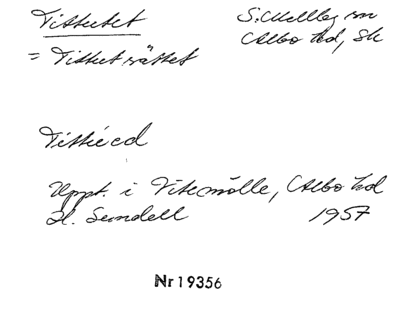 Tittutet S. Mellby sn
= Tittut sättet Albo hd, Sk
Uppt. i Vitemölle, Albo hd
H. Sundell 1957
Nr 19356